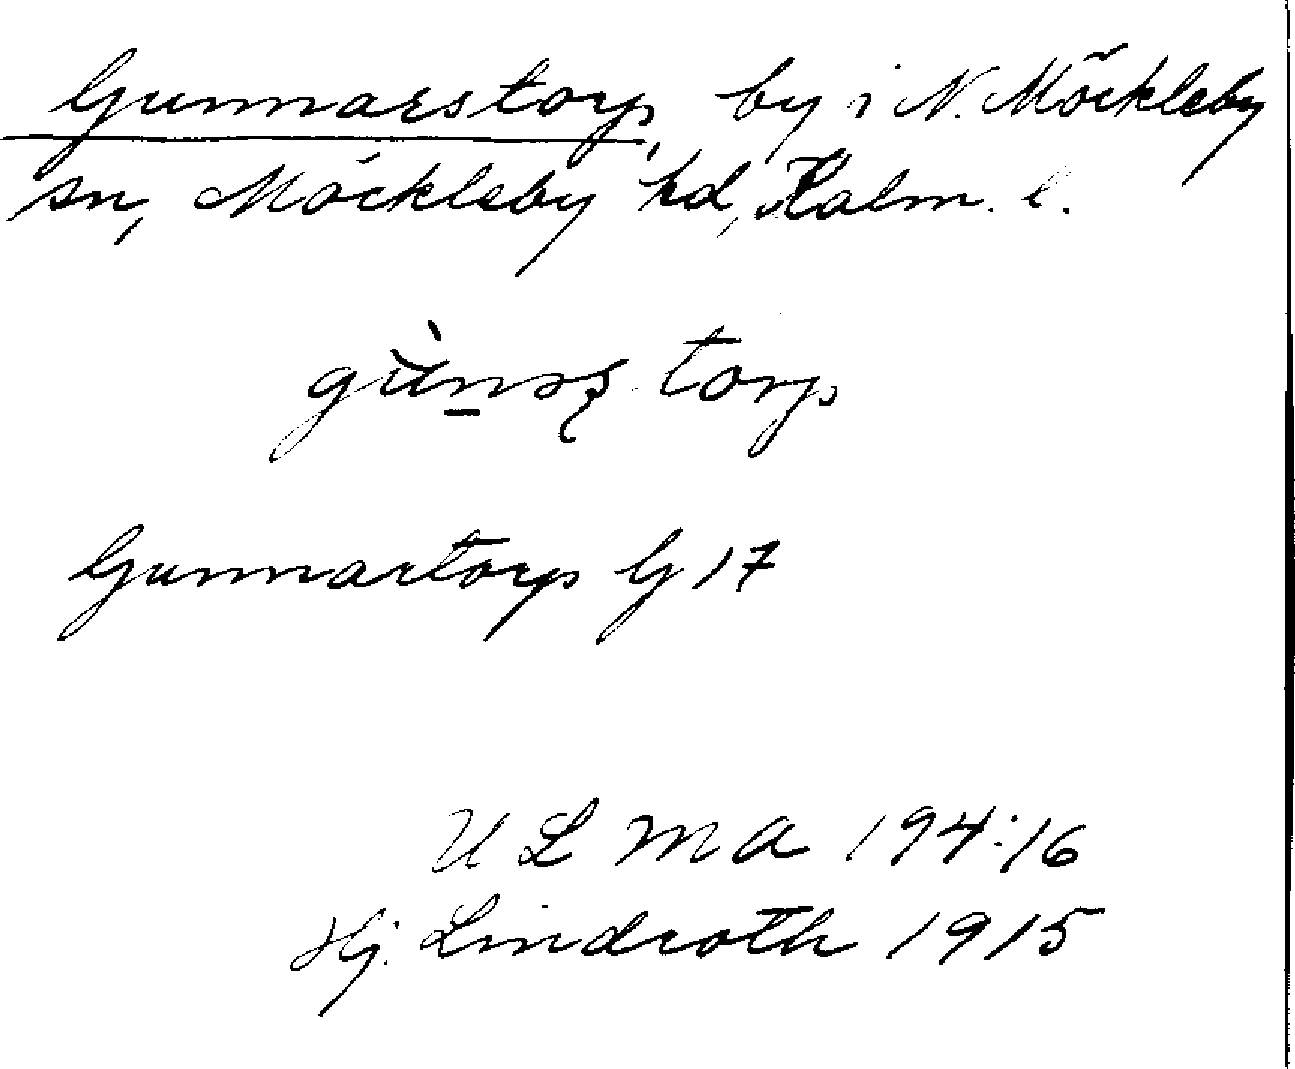 Gunnarstorp, by i N. Möckleby
sn, Möckleby hd, Kalm. l.
torp
Gunnartorp G 17
U L M A 194:16
Hj. Lindroth 1915